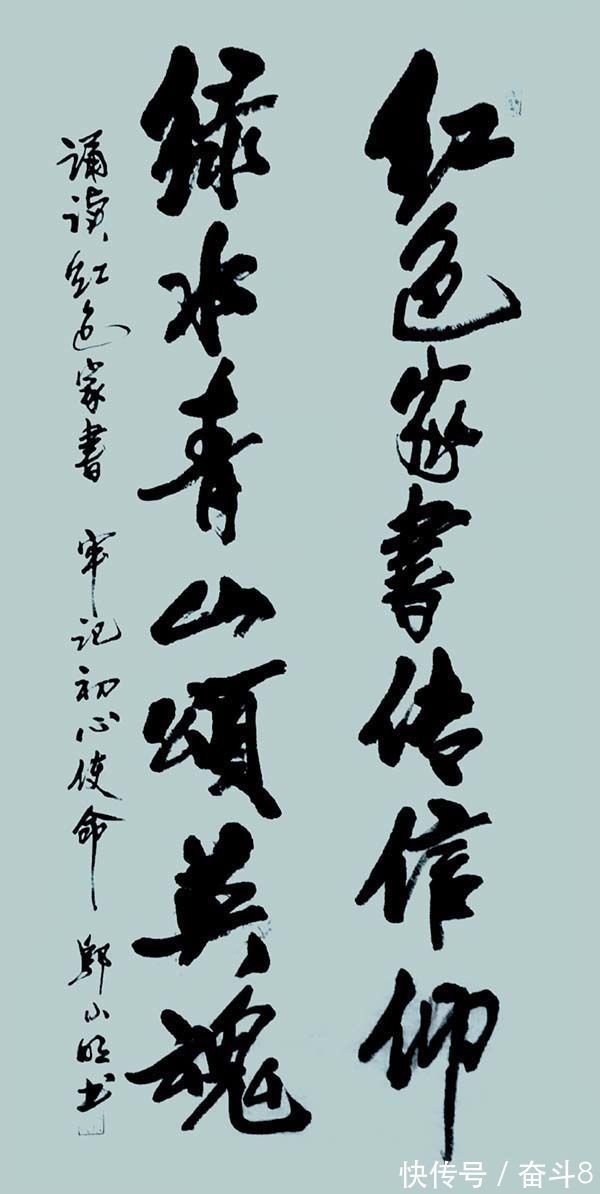 红色家書传信仰
绿水青山頌英魂
诵读红色家書 牢记初心使命 小明书
快传号 / 奋斗8